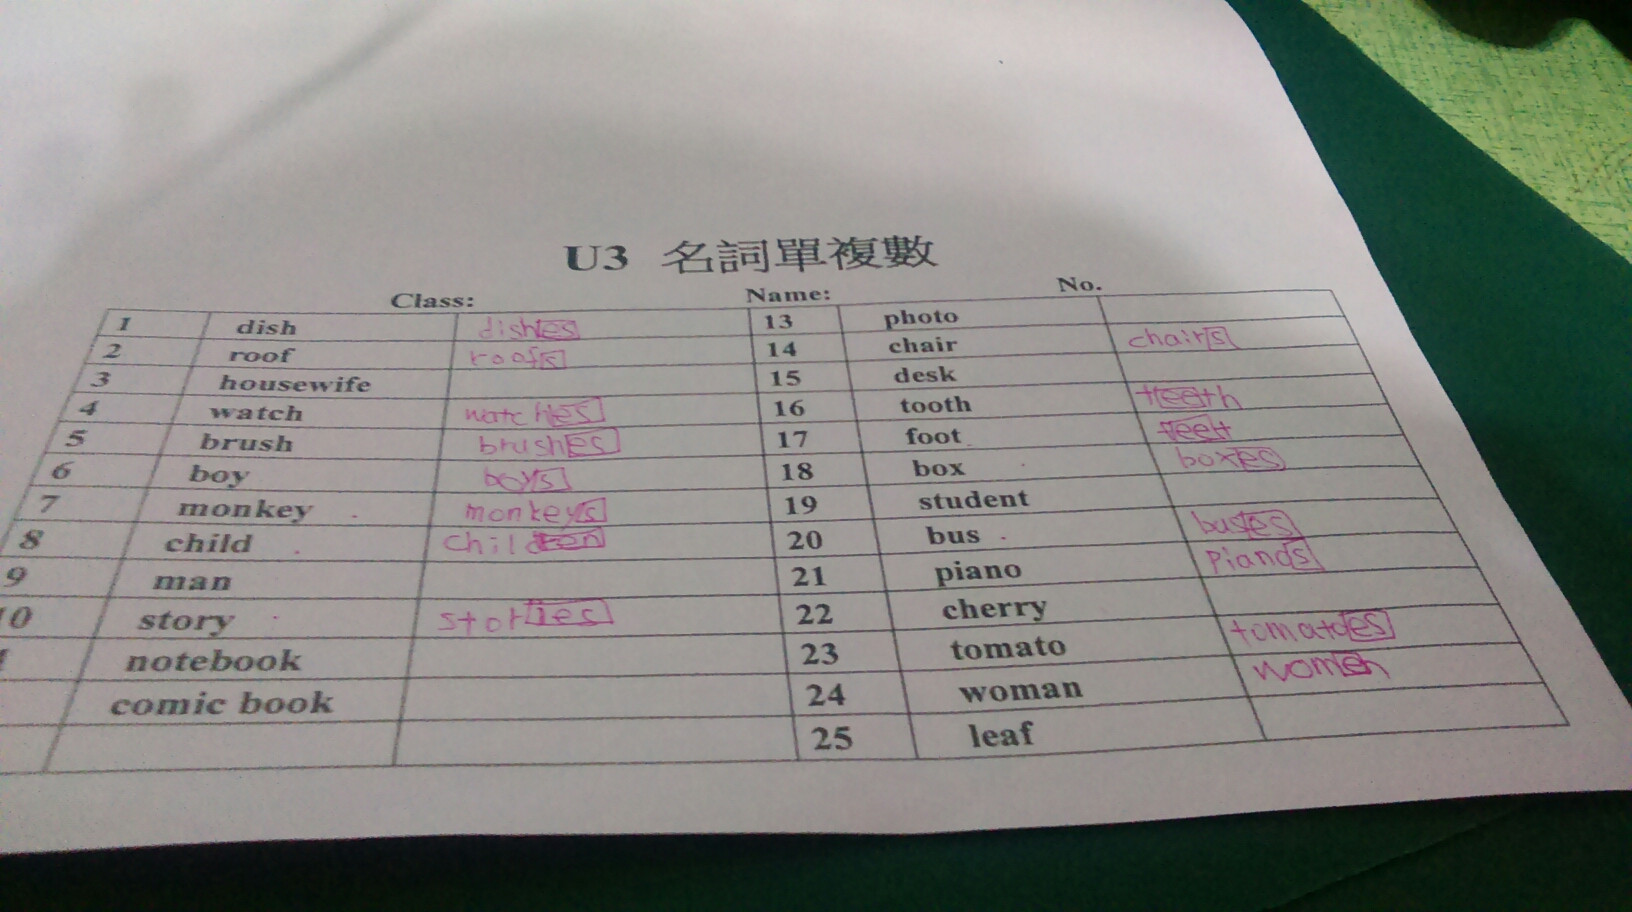 U3 名詞單複數
Class: Name: No.
1 dish dishes 13 photo
2 roof roofs 14 chair chairs
3 housewife 15 desk
4 watch watches 16 tooth teeth
5 brush brushes 17 foot feet
6 boy boys 18 box boxes
7 monkey monkeys 19 student
8 child children 20 bus buses
9 man 21 piano pianos
10 story stories 22 cherry
notebook 23 tomato tomatoes
comic book 24 woman women
25 leaf